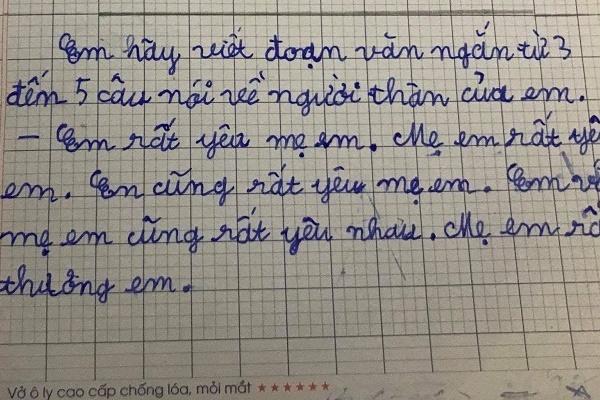 Em hãy viết đoạn văn ngắn từ 3
đến 5 câu nói về người thân của em.
– Em rất yêu mẹ em. Mẹ em rất yê
em. Em cũng rất yêu mẹ em. Em v
mẹ em cũng rất yêu nhau. Mẹ em rấ
thương em.
Vở ô ly cao cấp chống lóa, mỏi mắt ★★★★★★